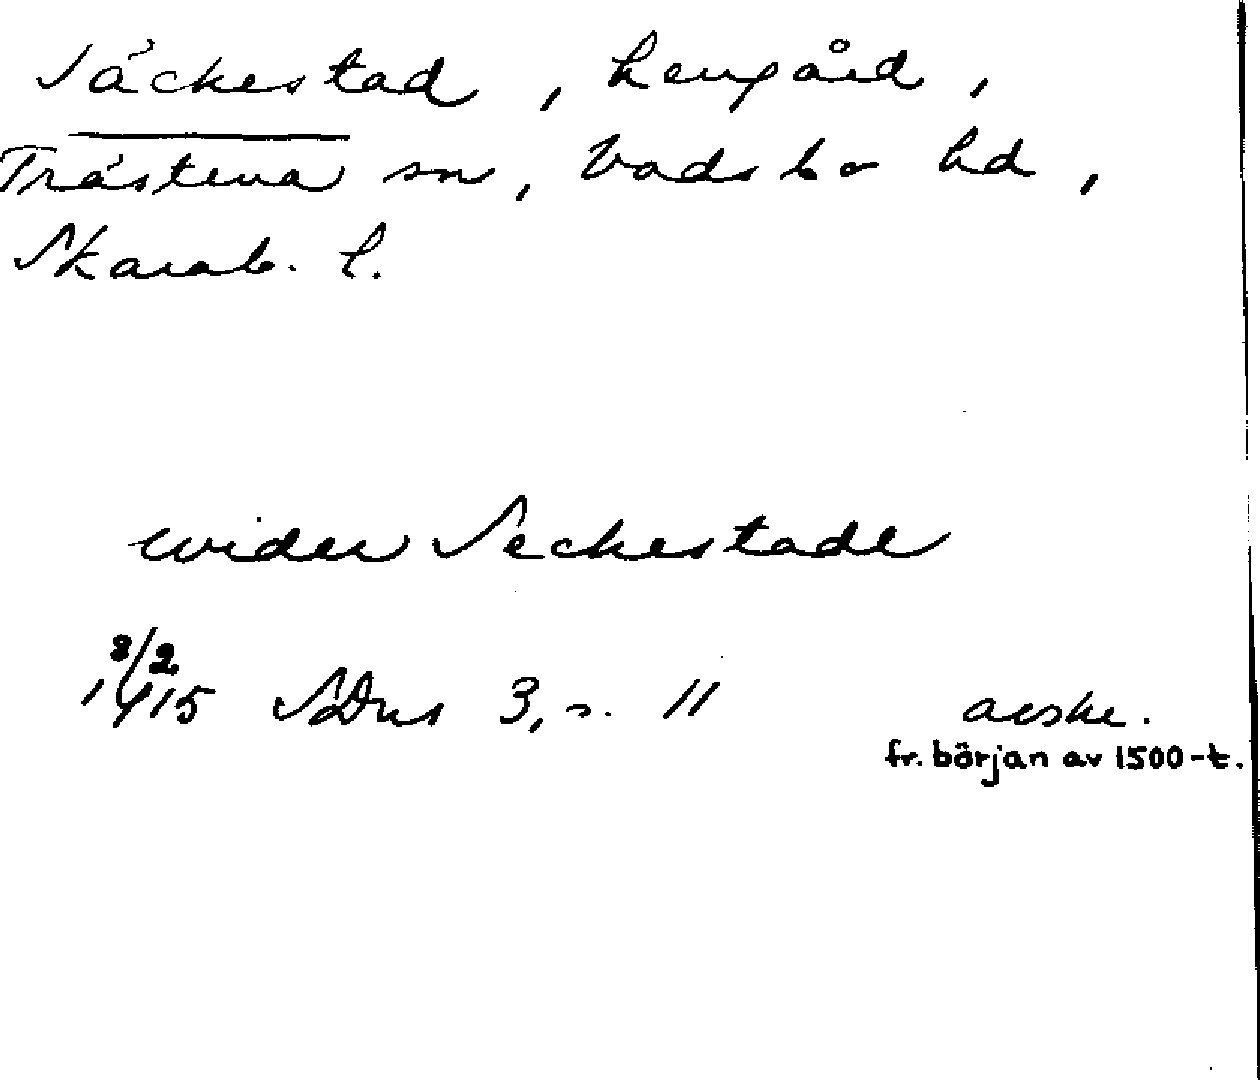 Säckestad, herrgård,
Trästena sn, Vadsbo hd,
Skarab. l.
wider Seckestade
8/2
1415 SDns 3, s. 11 avskr.
fr. början av 1500-t.